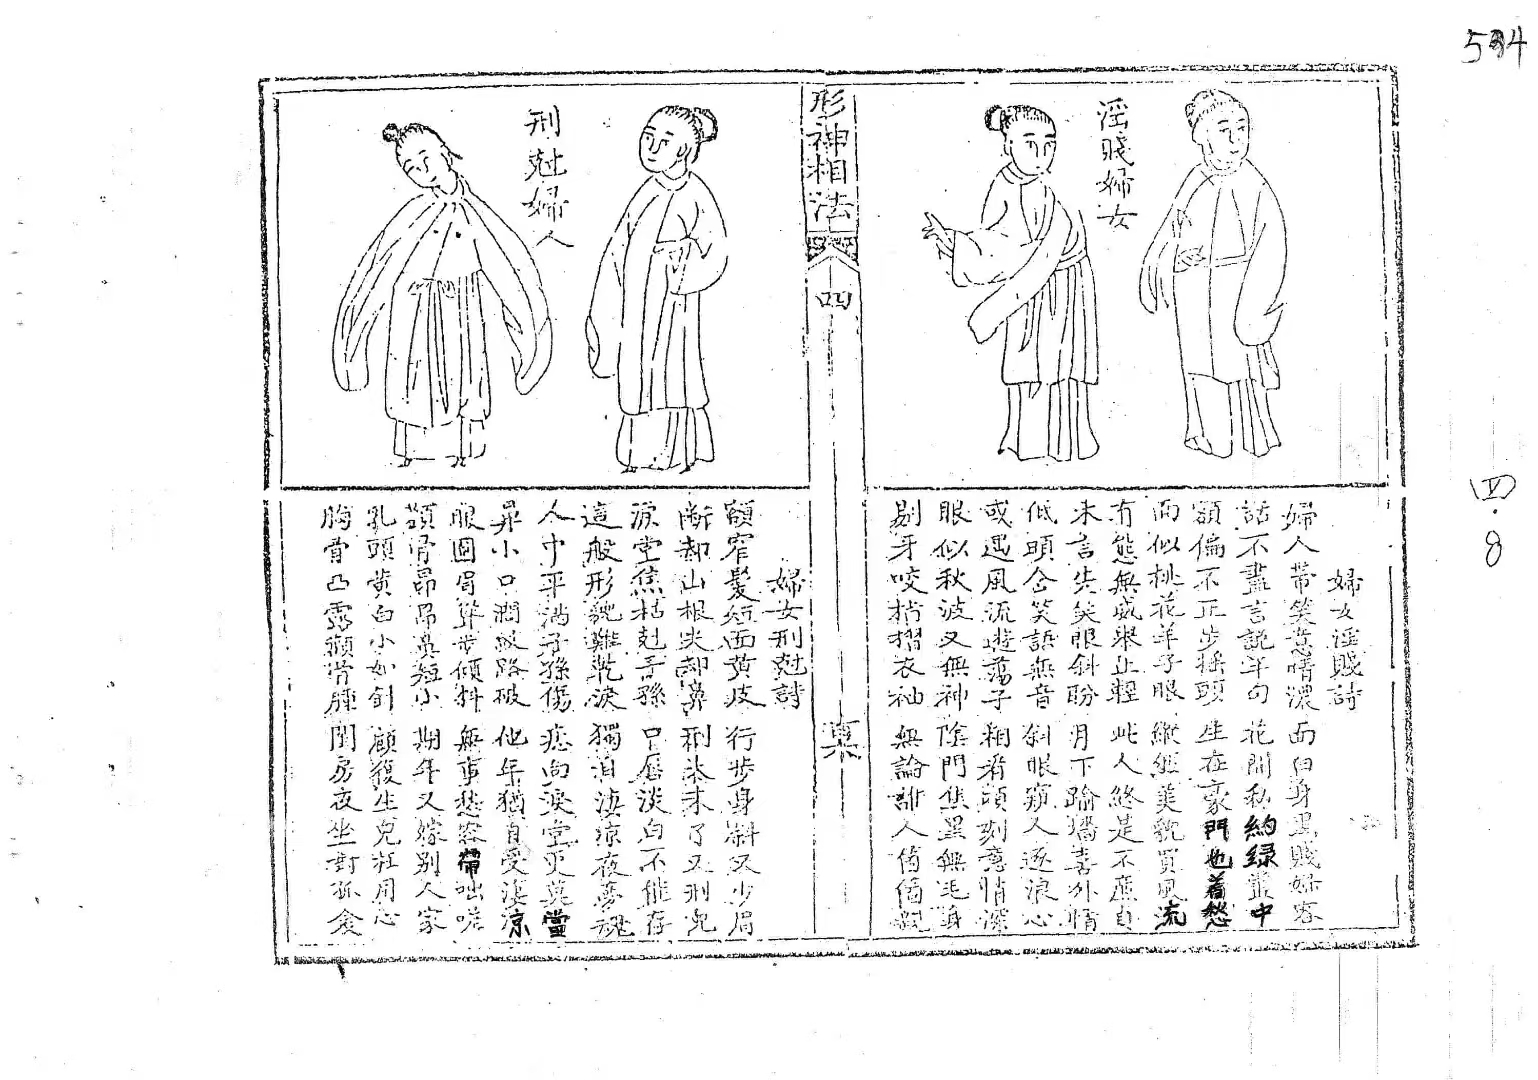 534
淫賤婦女
婦女淫賤詩
婦人帶笑意情濃 面白身黑賤婦容
話不盡言說半句 花間私約綠叢中
額偏不正步搖頭 生在豪門也着愁
面似桃花羊子眼 縱經美貌買風流
有態無威舉止輕 此人終是不廉貞
未言先笑眼斜盼 月下踰墻喜外情
低頭含笑語無音 斜眼窺人逐浪心
或遇風流遊蕩子 相看頃刻意情深
眼似秋波又無神 陰門焦黑無毛身
剔牙咬指摺衣袖 無論誰人個個親
形神相法
四
集
刑尅婦人
婦女刑尅詩
額窄髮短面黃皮 行步身斜又少眉
斷却山根尖却鼻 刑沖未了又刑兒
淚堂焦枯尅子孫 口唇淡白不能存
這般形貌難乾淚 獨泪淒涼夜夢魂
人中平滿子孫傷 痣向淚堂更莫當
鼻小口濶紋路破 他年猶自受淒涼
眼圓眉聳步傾斜 無事愁容帶咄嗟
顴骨昂昂鼻短小 期年又嫁別人家
乳頭黃白小如釘 顧復生兒枉用心
胸骨凸露 閨房夜坐對孤衾
四.8